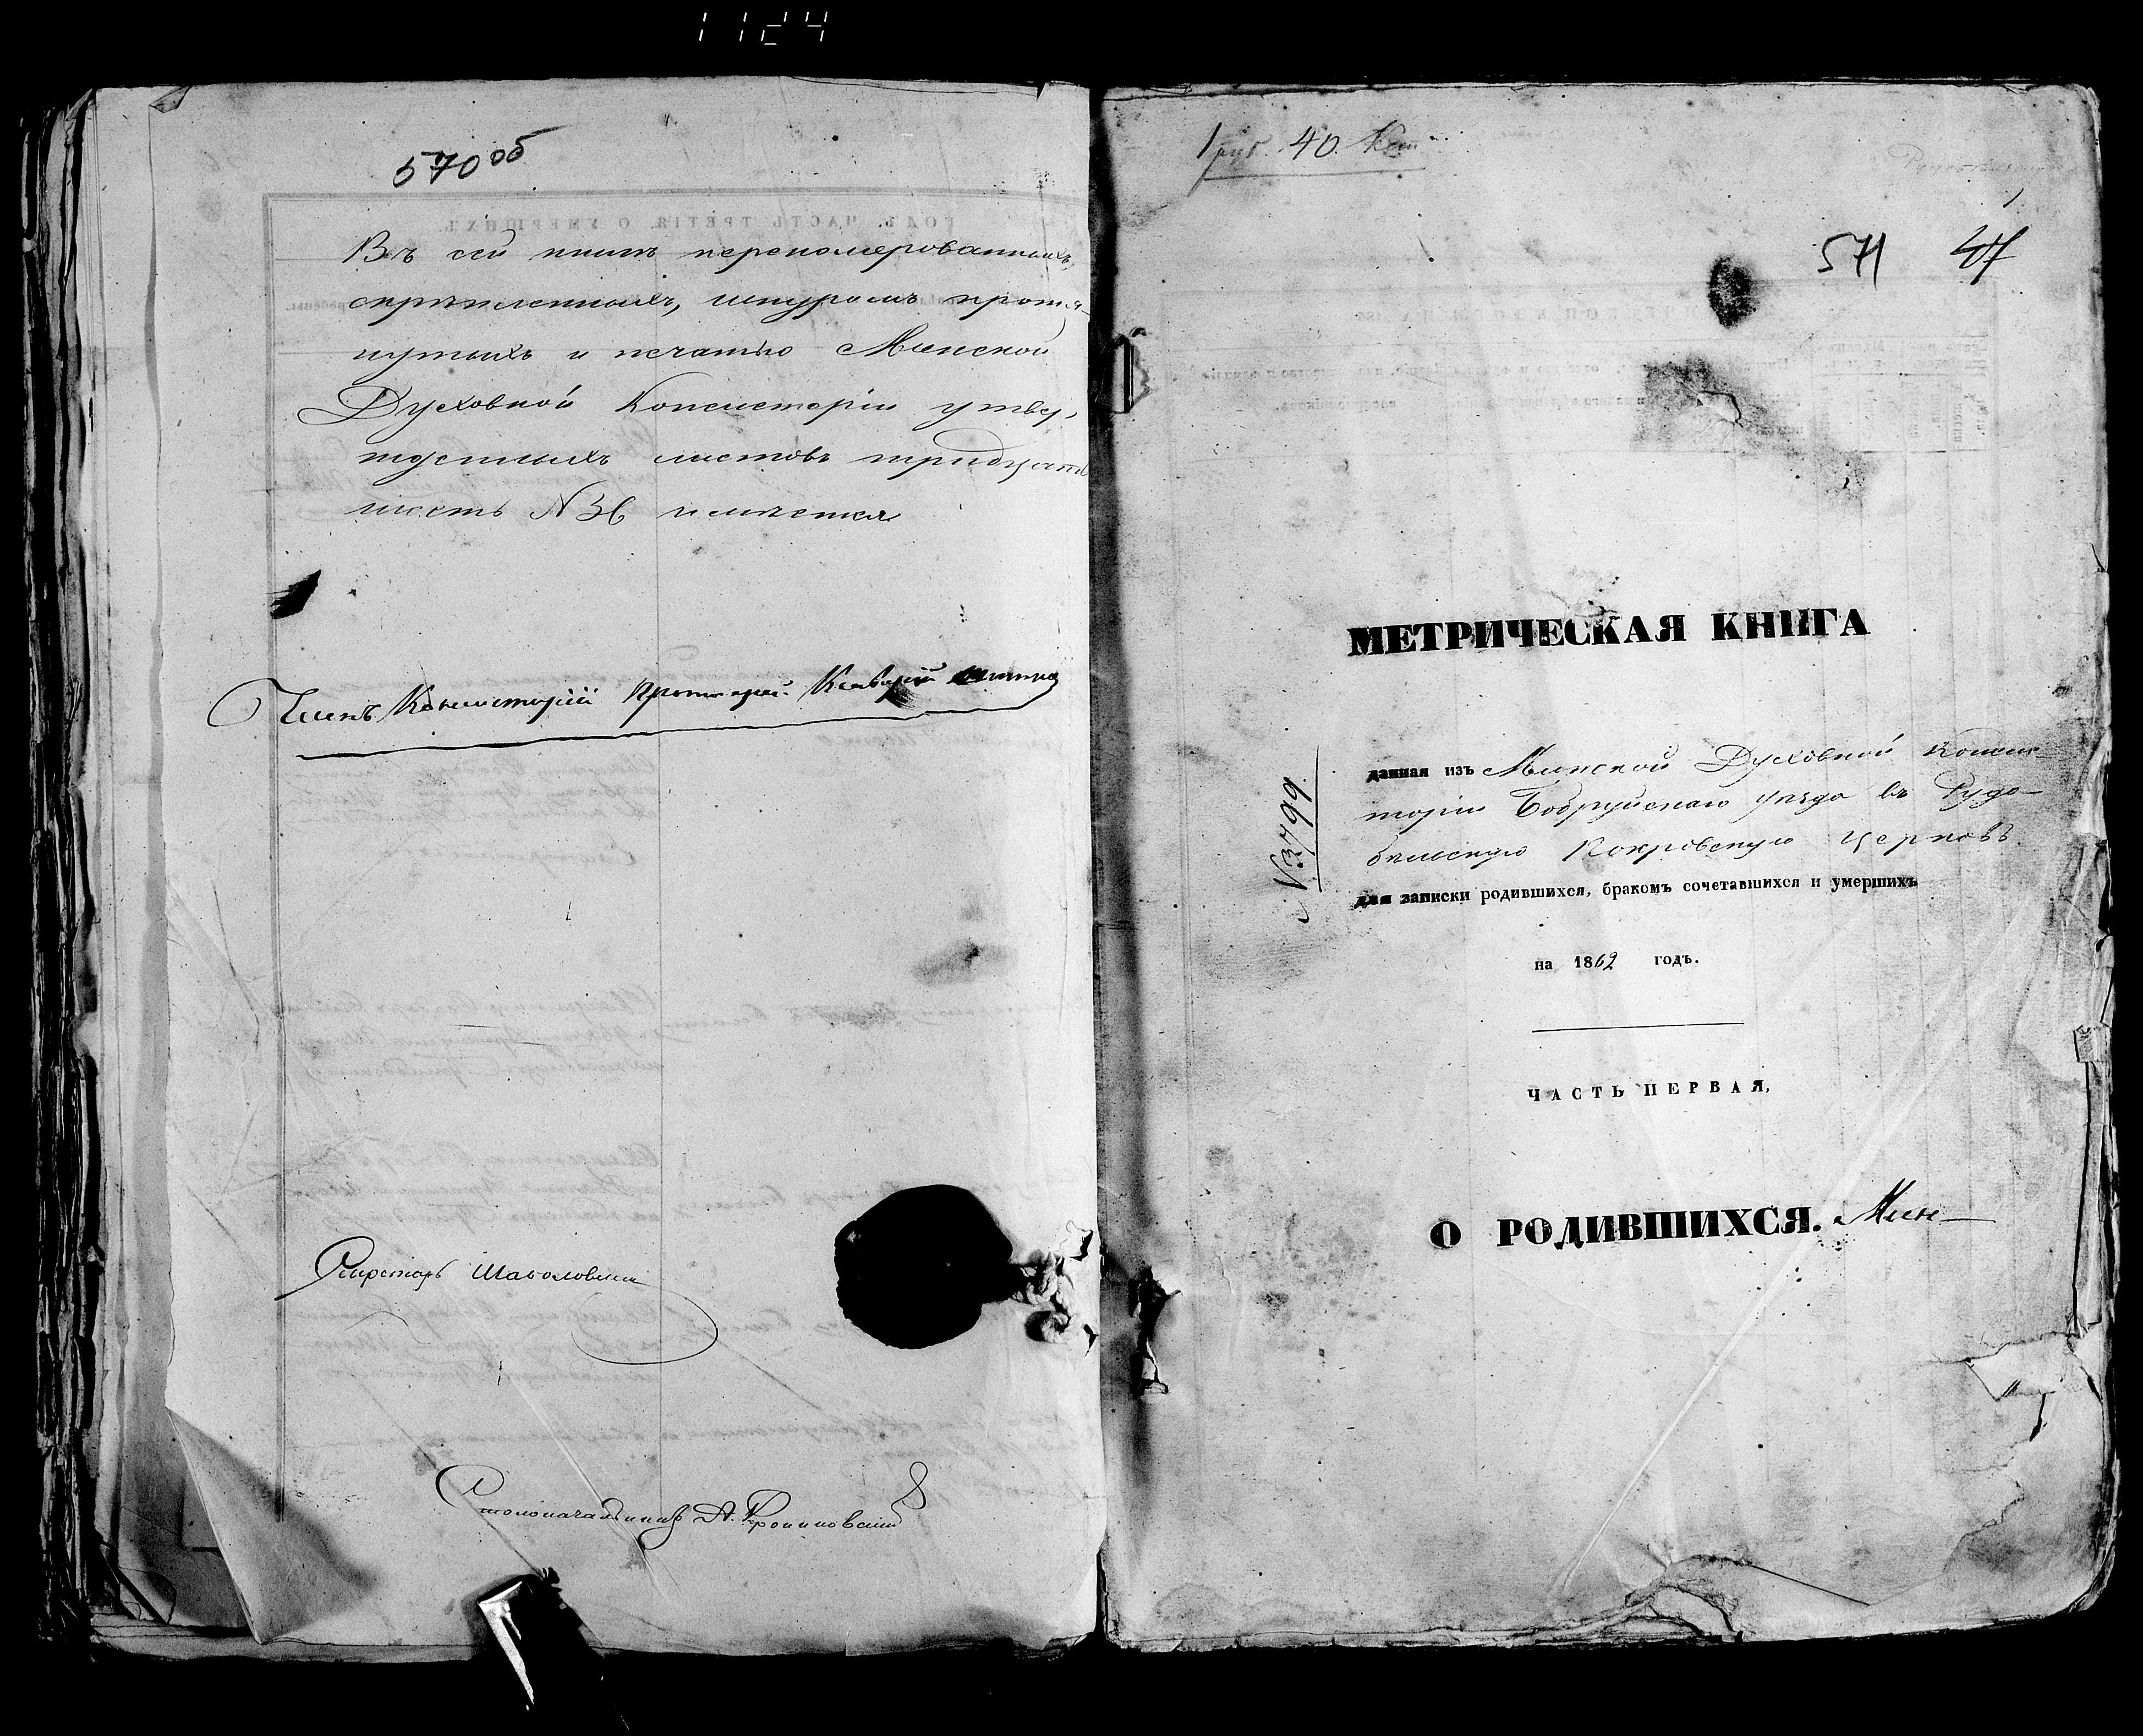 1124
570 об
Въ сей книгѣ перенумерованныхъ,
скрѣпленныхъ, шнуромъ протя-
нутыхъ и печатью Минской
Духовной Консисторіи утвер-
жденныхъ листовъ тридцать
шесть N 36 имѣется
Членъ Консисторіи Протоіерей
Секретарь
Столоначальникъ А.
1 руб. 40 Коп
571
N 3799
МЕТРИЧЕСКАЯ КНИГА
данная изъ Минской Духовной Консис-
торіи Бобруйскаго уѣзда въ Рудо-
бѣльскую Покровскую церковь
для записки родившихся, бракомъ сочетавшихся и умершихъ
на 1862 годъ.
ЧАСТЬ ПЕРВАЯ,
О РОДИВШИХСЯ. Мин-